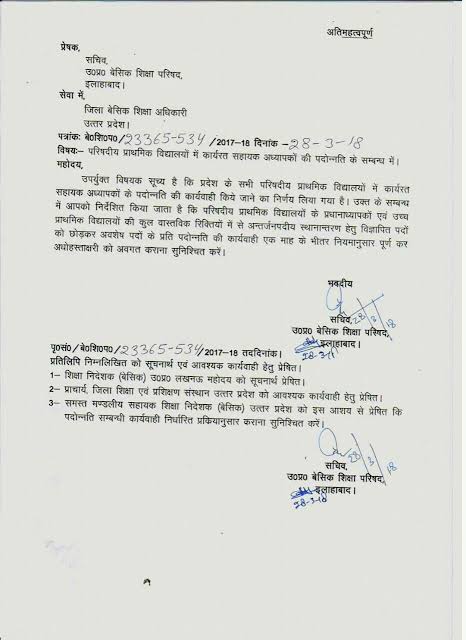 अतिमहत्वपूर्ण
प्रेषक,
सचिव,
उ0प्र0 बेसिक शिक्षा परिषद,
इलाहाबाद।
सेवा में,
जिला बेसिक शिक्षा अधिकारी
उत्तर प्रदेश।
पत्रांकः बे0शि0प0/23365-534/2017-18 दिनांक -28-3-18
विषयः- परिषदीय प्राथमिक विद्यालयों में कार्यरत सहायक अध्यापकों की पदोन्नति के सम्बन्ध में।
महोदय,
उपर्युक्त विषयक सूच्य है कि प्रदेश के सभी परिषदीय प्राथमिक विद्यालयों में कार्यरत
सहायक अध्यापकों के पदोन्नति की कार्यवाही किये जाने का निर्णय लिया गया है। उक्त के सम्बन्ध
में आपको निर्देशित किया जाता है कि परिषदीय प्राथमिक विद्यालयों के प्रधानाध्यापकों एवं उच्च
प्राथमिक विद्यालयों की कुल वास्तविक रिक्तियों में से अन्तर्जनपदीय स्थानान्तरण हेतु विज्ञापित पदों
को छोड़कर अवशेष पदों के प्रति पदोन्नति की कार्यवाही एक माह के भीतर नियमानुसार पूर्ण कर
अधोहस्ताक्षरी को अवगत कराना सुनिश्चित करें।
भवदीय
28/3/18
सचिव,
उ0प्र0 बेसिक शिक्षा परिषद,
इलाहाबाद।
28-3-18
पृ0सं0/बे0शि0प0/23365-534/2017-18 तददिनांक।
प्रतिलिपि निम्नलिखित को सूचनार्थ एवं आवश्यक कार्यवाही हेतु प्रेषित।
1- शिक्षा निदेशक (बेसिक) उ0प्र0 लखनऊ महोदय को सूचनार्थ प्रेषित।
2- प्राचार्य, जिला शिक्षा एवं प्रशिक्षण संस्थान उत्तर प्रदेश को आवश्यक कार्यवाही हेतु प्रेषित।
3- समस्त मण्डलीय सहायक शिक्षा निदेशक (बेसिक) उत्तर प्रदेश को इस आशय से प्रेषित कि
पदोन्नति सम्बन्धी कार्यवाही निर्धारित प्रक्रियानुसार कराना सुनिश्चित करें।
28/3/18
सचिव,
उ0प्र0 बेसिक शिक्षा परिषद,
इलाहाबाद।
28-3-18